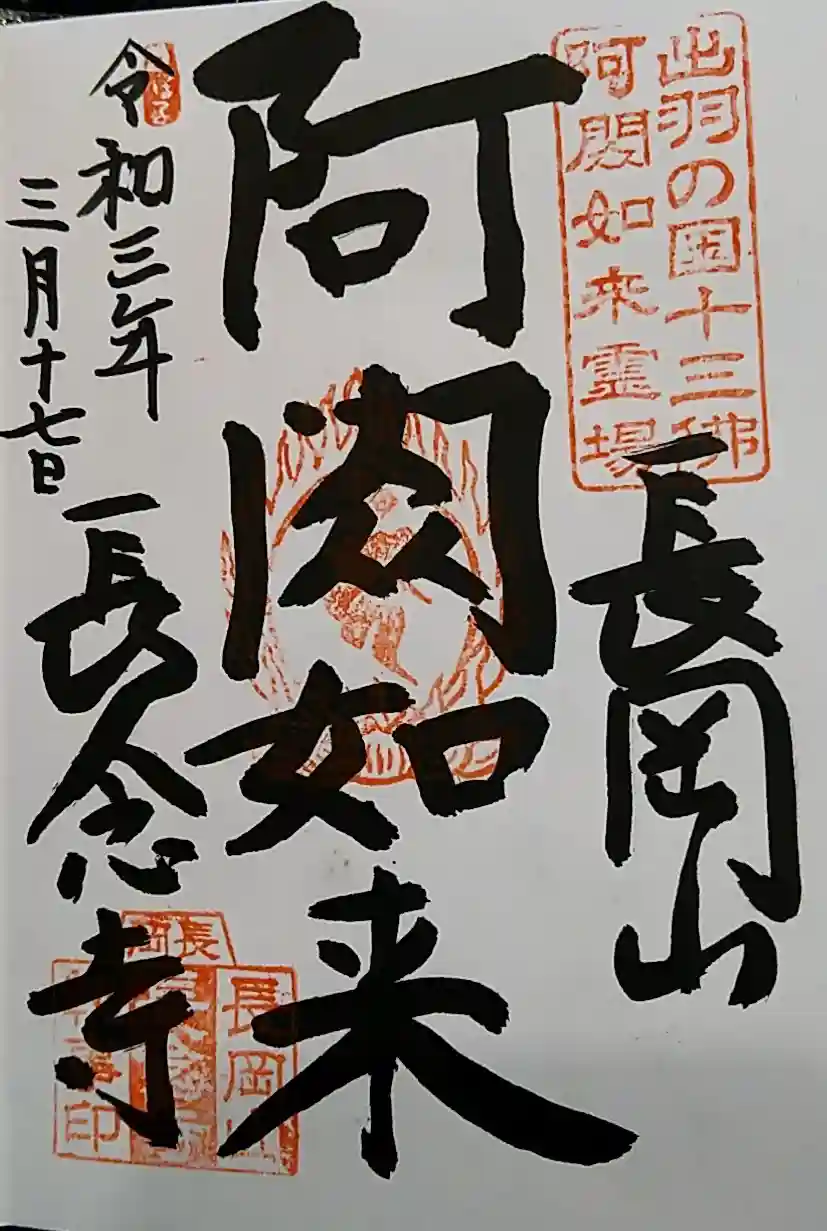 出羽の國十三佛
阿閦如来霊場
長岡山
阿閦如来
令和三年
三月十七日
長念寺
長岡
長岡山
印